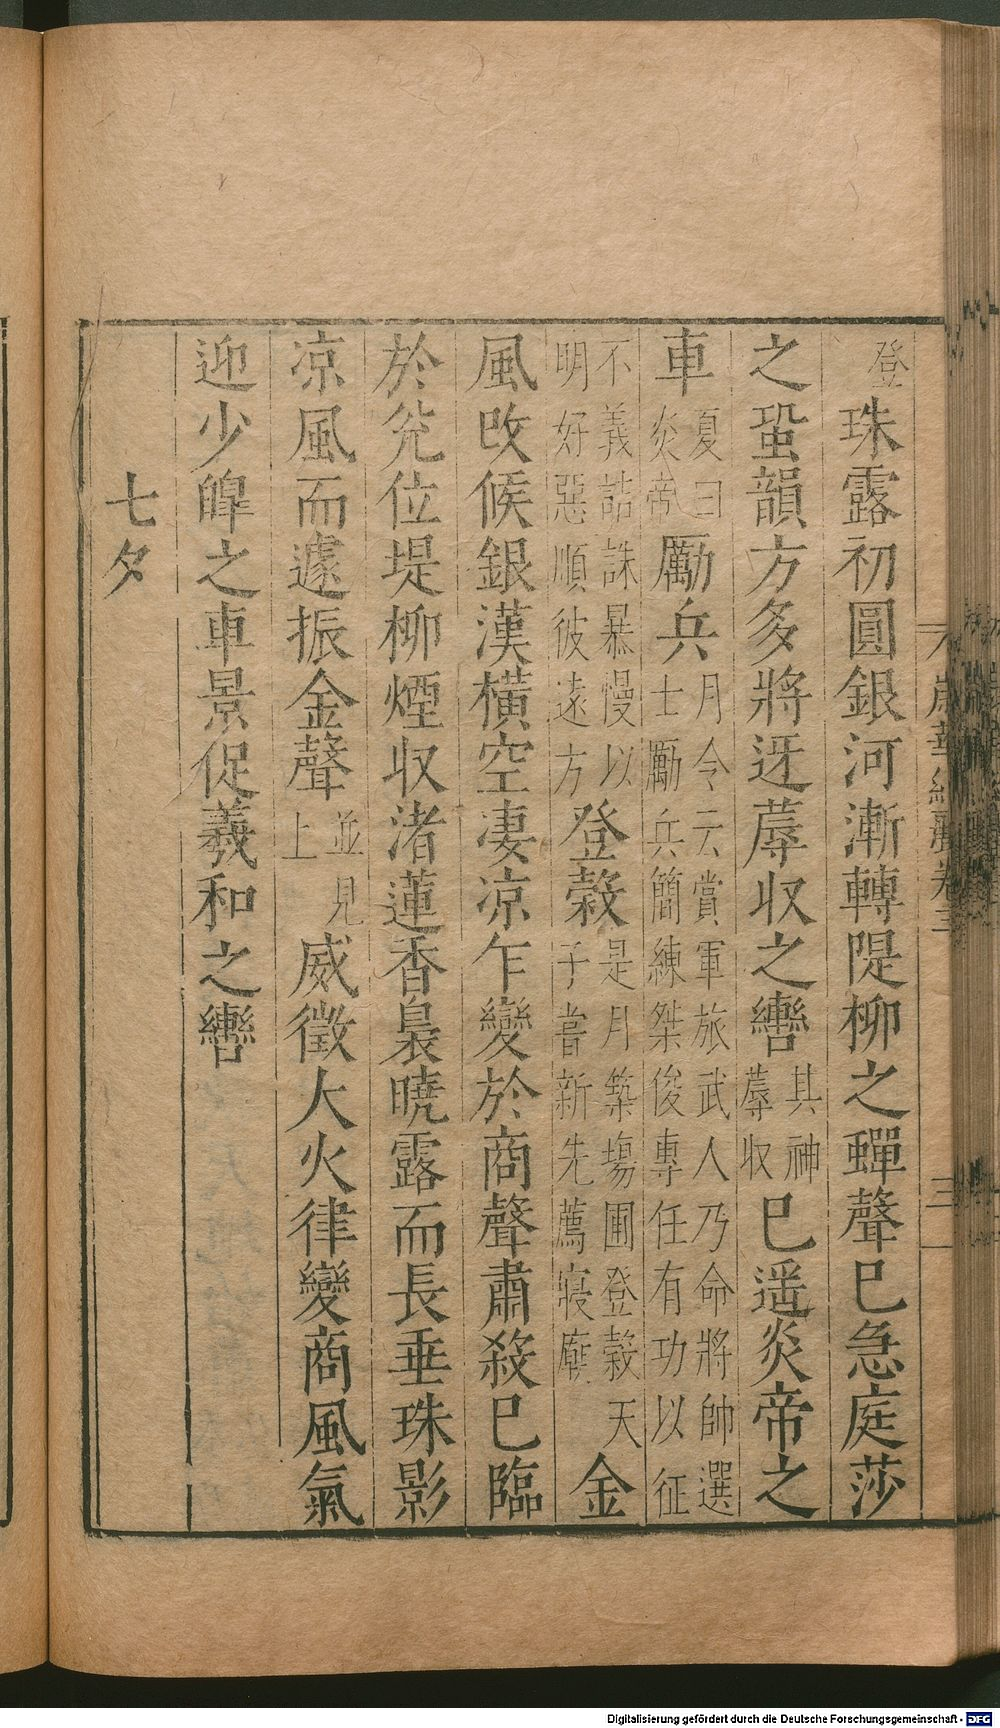 登珠露初圓銀河漸轉隄柳之蟬聲巳急庭莎
之蛩韻方多將迓蓐收之轡其神蓐收巳遥炎帝之
車夏曰炎帝厲兵月令云賞軍旅武人乃命將帥選士勵兵簡練桀俊專任有功以征
不義詰誅暴慢以明好惡順彼遠方登穀是月築場圃登穀天子嘗新先薦寢廟金
風改候銀漢橫空凄凉乍變於商聲肅殺巳臨
於兊位堤柳煙収渚蓮香裊曉露而長垂珠影
凉風而遽振金聲並見上威徵大火律變商風氣
迎少皥之車景促羲和之轡
七夕
三
Digitalisierung gefördert durch die Deutsche Forschungsgemeinschaft - DFG